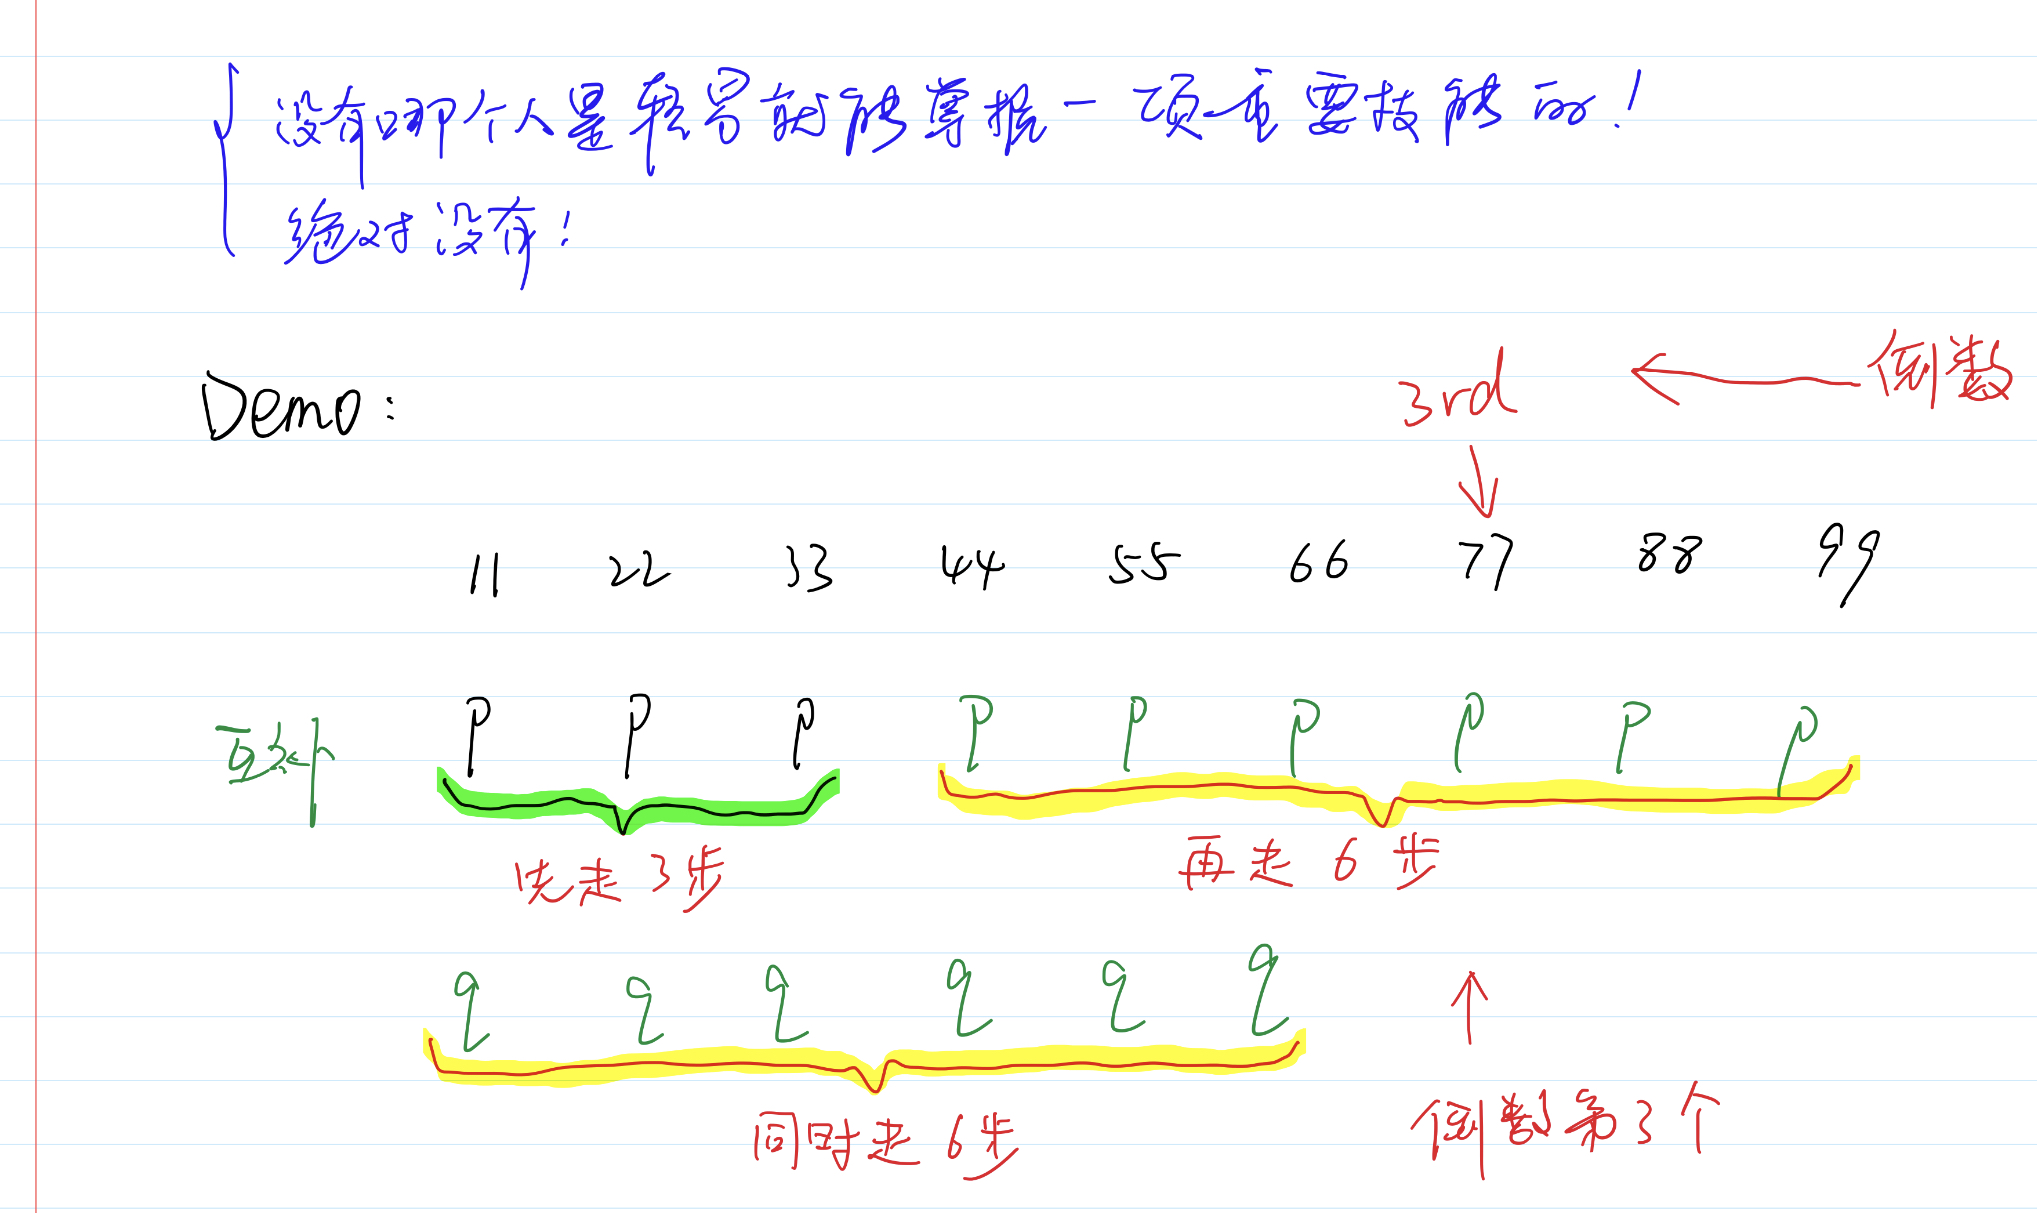 没有哪个人是轻易就能掌握一项重要技能的！
绝对没有！
Demo：
3rd
倒数
11 22 33 44 55 66 77 88 99
互补
P P P P P P P P P
先走3步
再走6步
q q q q q q
同时走6步
倒数第3个